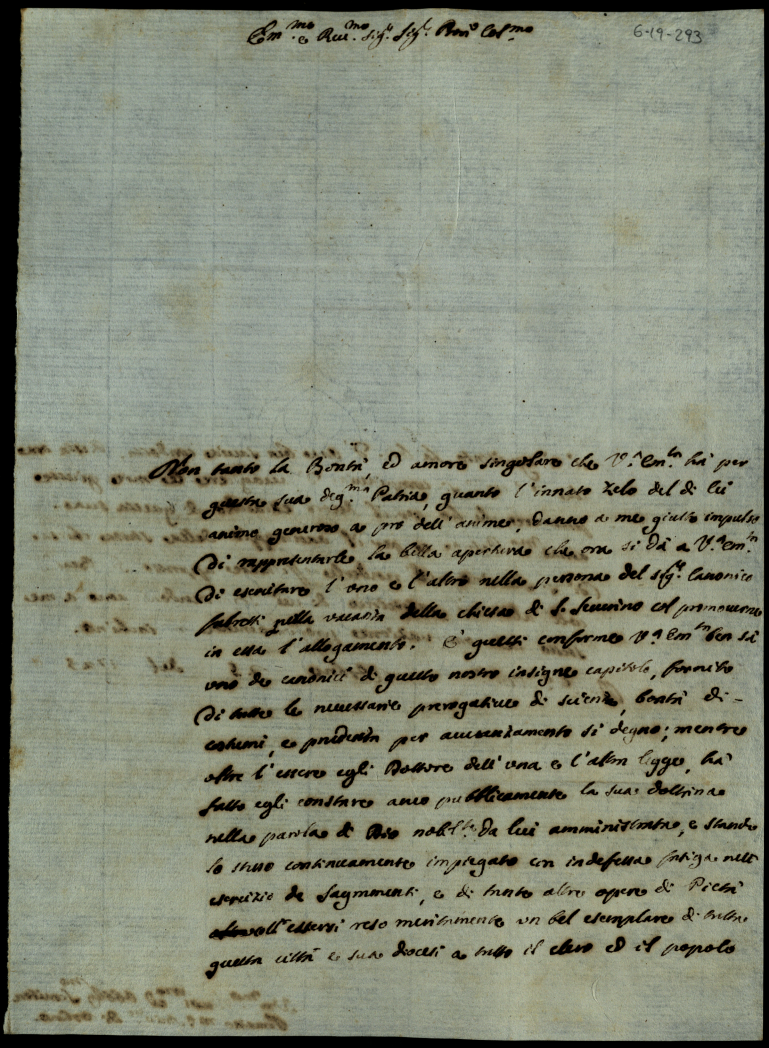 Em.mo e Rev.mo Sig.r Sig.r Pron.e Col.mo
6-19-293
Non tanto la Bontà, ed amore singolare che V.a Em.za hà per
questa sua deg.ma Patria, quanto l'innato Zelo del di lei
animo generoso a prò dell'anime, danno a me giusto impulso
di rappresentarle la bella apertura che ora si dà a V.a Em.za
di esercitare l'uno e l'altro nella persona del Sig.r Canonico
nella vacanza della chiesa di S. Severino col promovere
in essa l'allegamento. È questi conforme V.a Em.za ben sà
uno de canonici di questo nostro insigne capitolo, fornito
di tutte le necessarie prerogative di scienza, bontà di
costumi, e prudenza per avvanzamento si degno; mentre
oltre l'essere egli Dottore dell'una e l'altra legge, hà
fatto egli constare anco pubblicamente la sua dottrina
nella parola di Dio da lui amministrata, e stando
lo stesso continuamente impiegato con indefessa fatiga nell'
esercizio de Sagramenti, e di tante altre opere di Pietà
essersi reso meritamente un bel esemplare di tutta
questa città e sua diocesi a tutto il clero ed il popolo